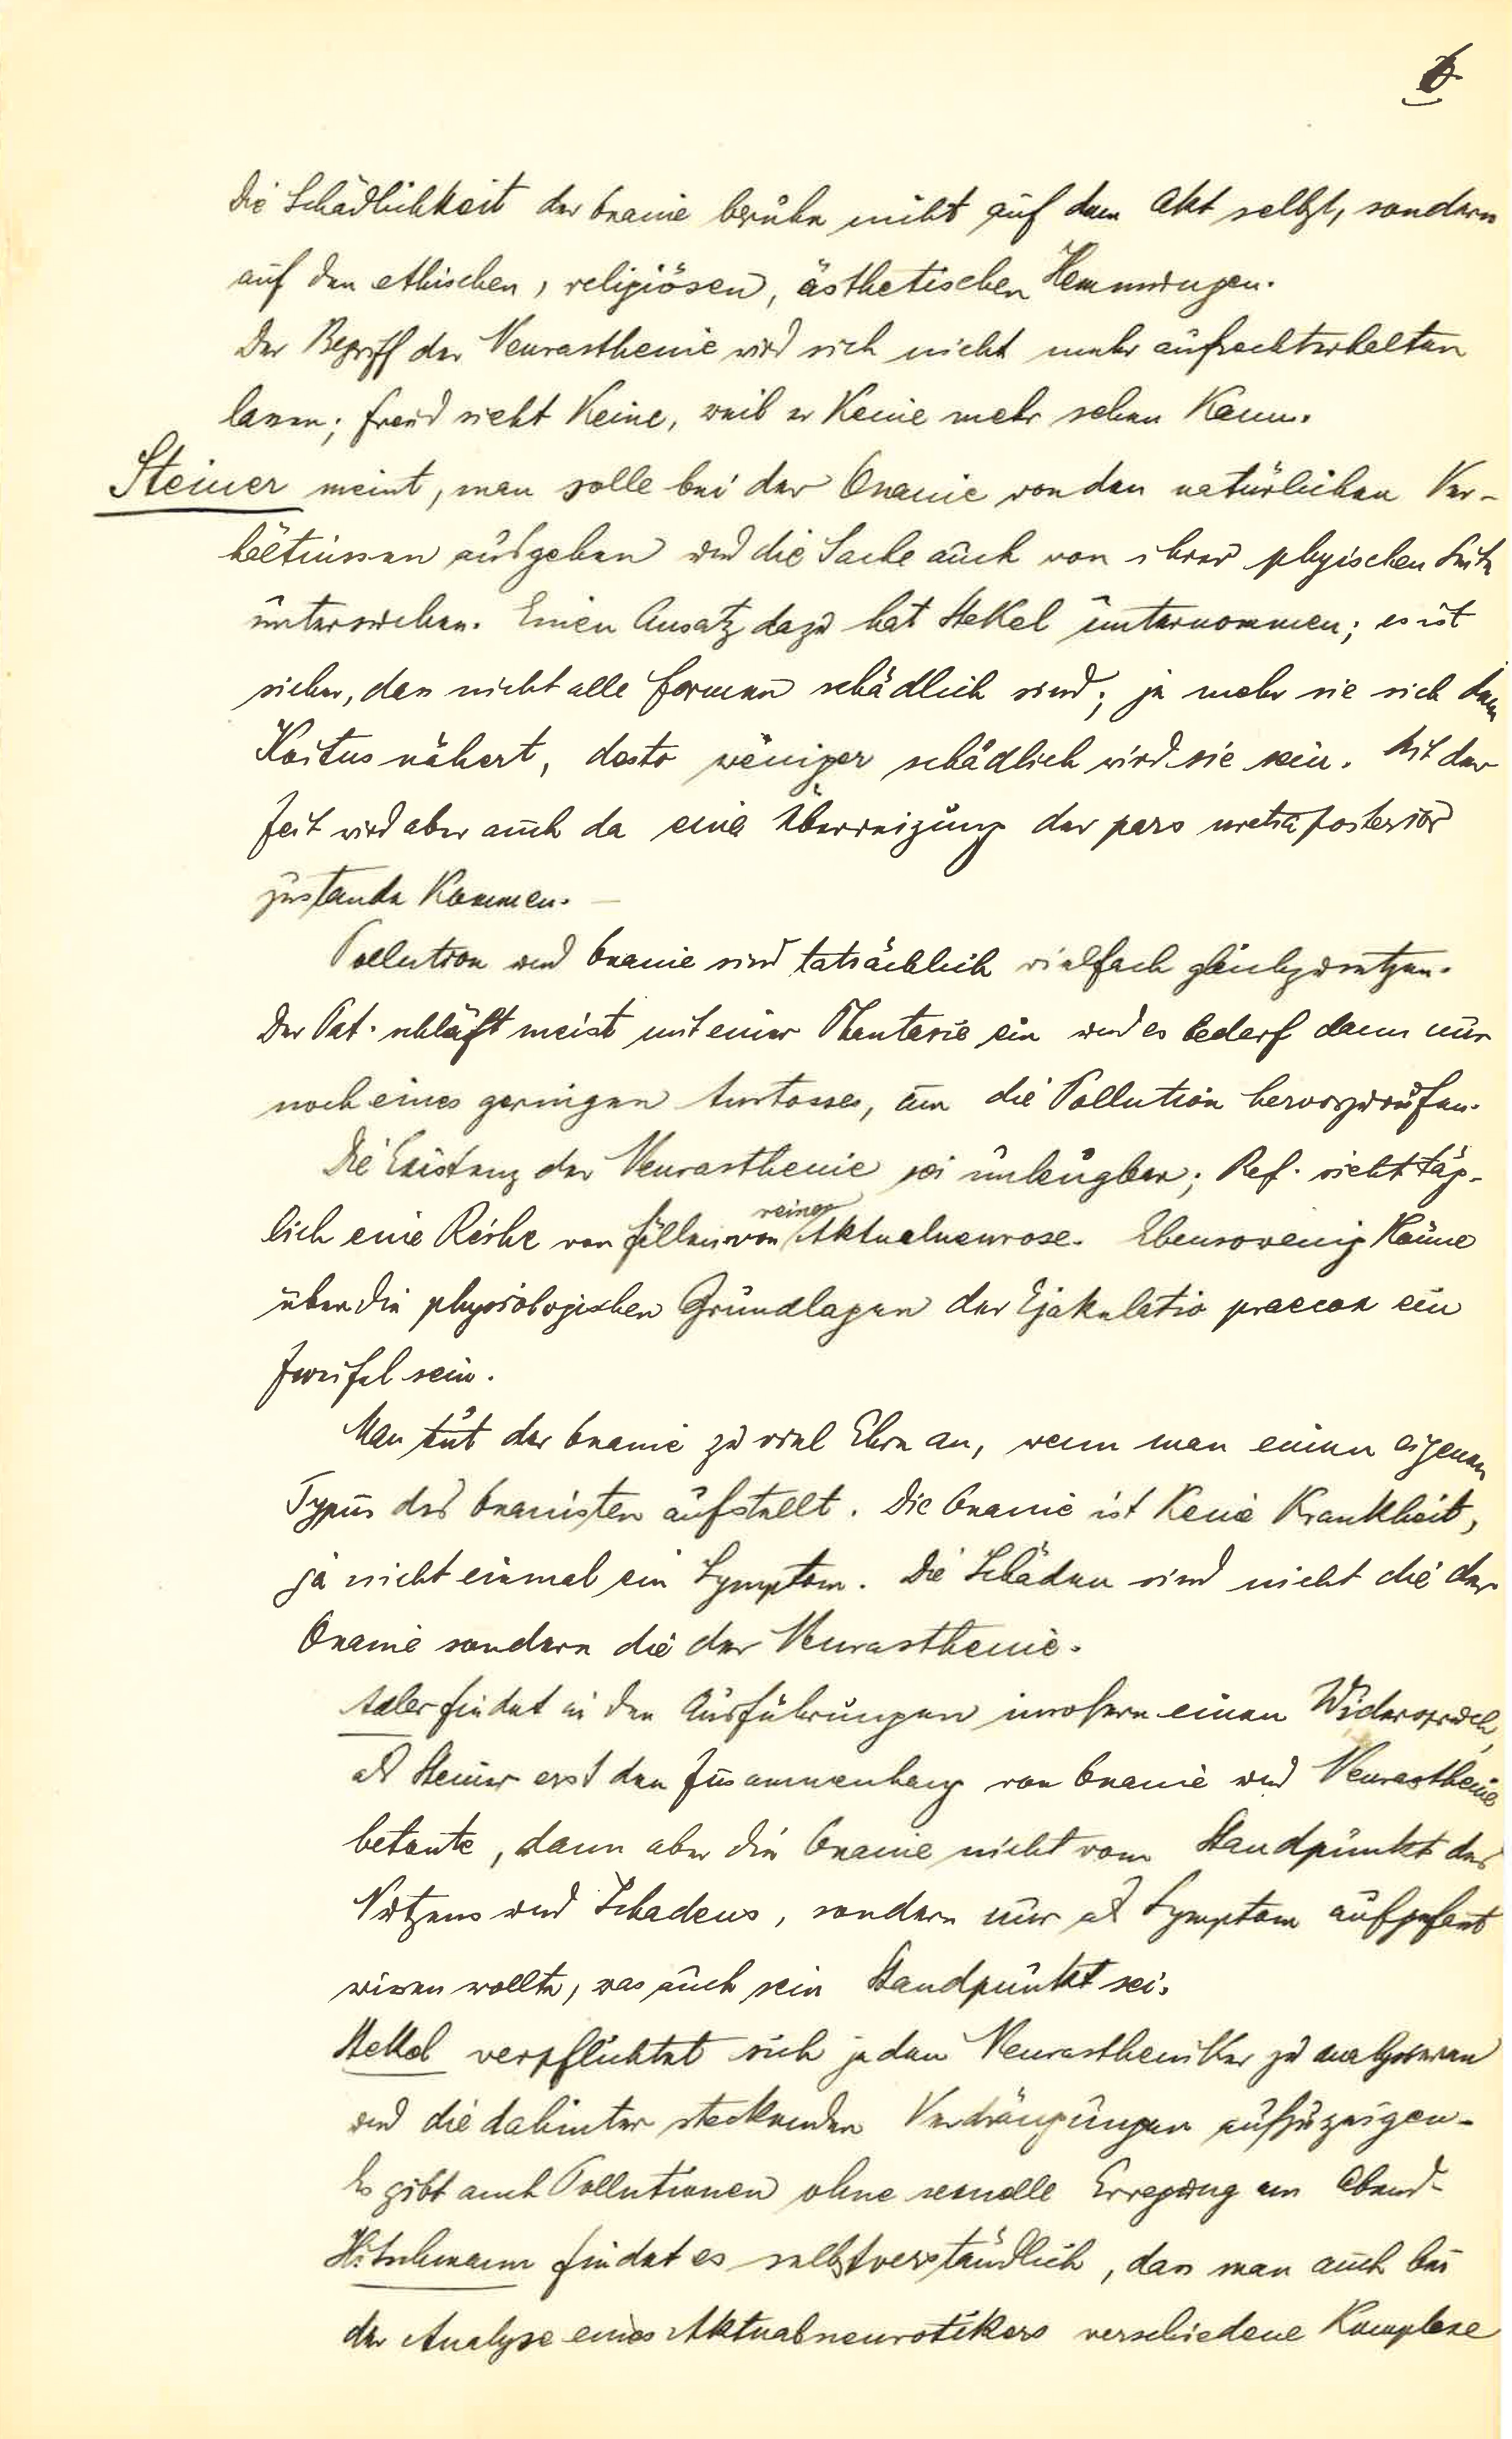 6
Die Schädlichkeit der Onanie beruhe nicht auf dem Akt selbst, sondern
auf den ethischen, religiösen, ästhetischen Hemmungen.
Der Begriff der Neurasthenie wird sich nicht mehr aufrechterhalten
lassen; Freud sieht keine, weil er keine mehr sehen kann.
Steiner meint, man solle bei der Onanie von den natürlichen Ver-
hältnissen ausgehen und die Sache auch von ihrer physischen Seite
untersuchen. Einen Ansatz dazu hat Stekel unternommen; es ist
sicher, dass nicht alle Formen schädlich sind; je mehr sie sich dem
Koitus nähert, desto weniger schädlich wird sie sein. Mit der
Zeit wird aber auch da eine Überreizung der pars posterior
zustande kommen. —
Pollution und Onanie sind tatsächlich vielfach gleichzusetzen.
Der Pat. schläft meist mit einer Phantasie ein und es bedarf dann nur
noch eines geringen Anstosses, um die Pollution hervorzurufen.
Die Existenz der Neurasthenie sei unleugbar; Ref. sieht täg-
lich eine Reihe von Fällen von reiner Aktualneurose. Ebensowenig könne
über die physiologischen Grundlagen der Ejakulatio praecox ein
Zweifel sein.
Man tut der Onanie zu viel Ehre an, wenn man einen eigenen
Typus des Onanisten aufstellt. Die Onanie ist keine Krankheit,
ja nicht einmal ein Symptom. Die Schäden sind nicht die der
Onanie sondern die der Neurasthenie.
Adler findet in den Ausführungen insofern einen Widerspruch,
als Steiner erst den Zusammenhang von Onanie und Neurasthenie
betonte, dann aber die Onanie nicht vom Standpunkt des
Nutzens und Schadens, sondern nur als Symptom aufgefasst
wissen wollte, was auch sein Standpunkt sei.
Stekel verpflichtet sich jeden Neurastheniker zu analysieren
und die dahinter steckenden Verdrängungen aufzuzeigen.
Es gibt auch Pollutionen ohne sexuelle Erregung am Abend.
Hitschmann findet es selbstverständlich, dass man auch bei
der Analyse eines Aktualneurotikers verschiedene Komplexe